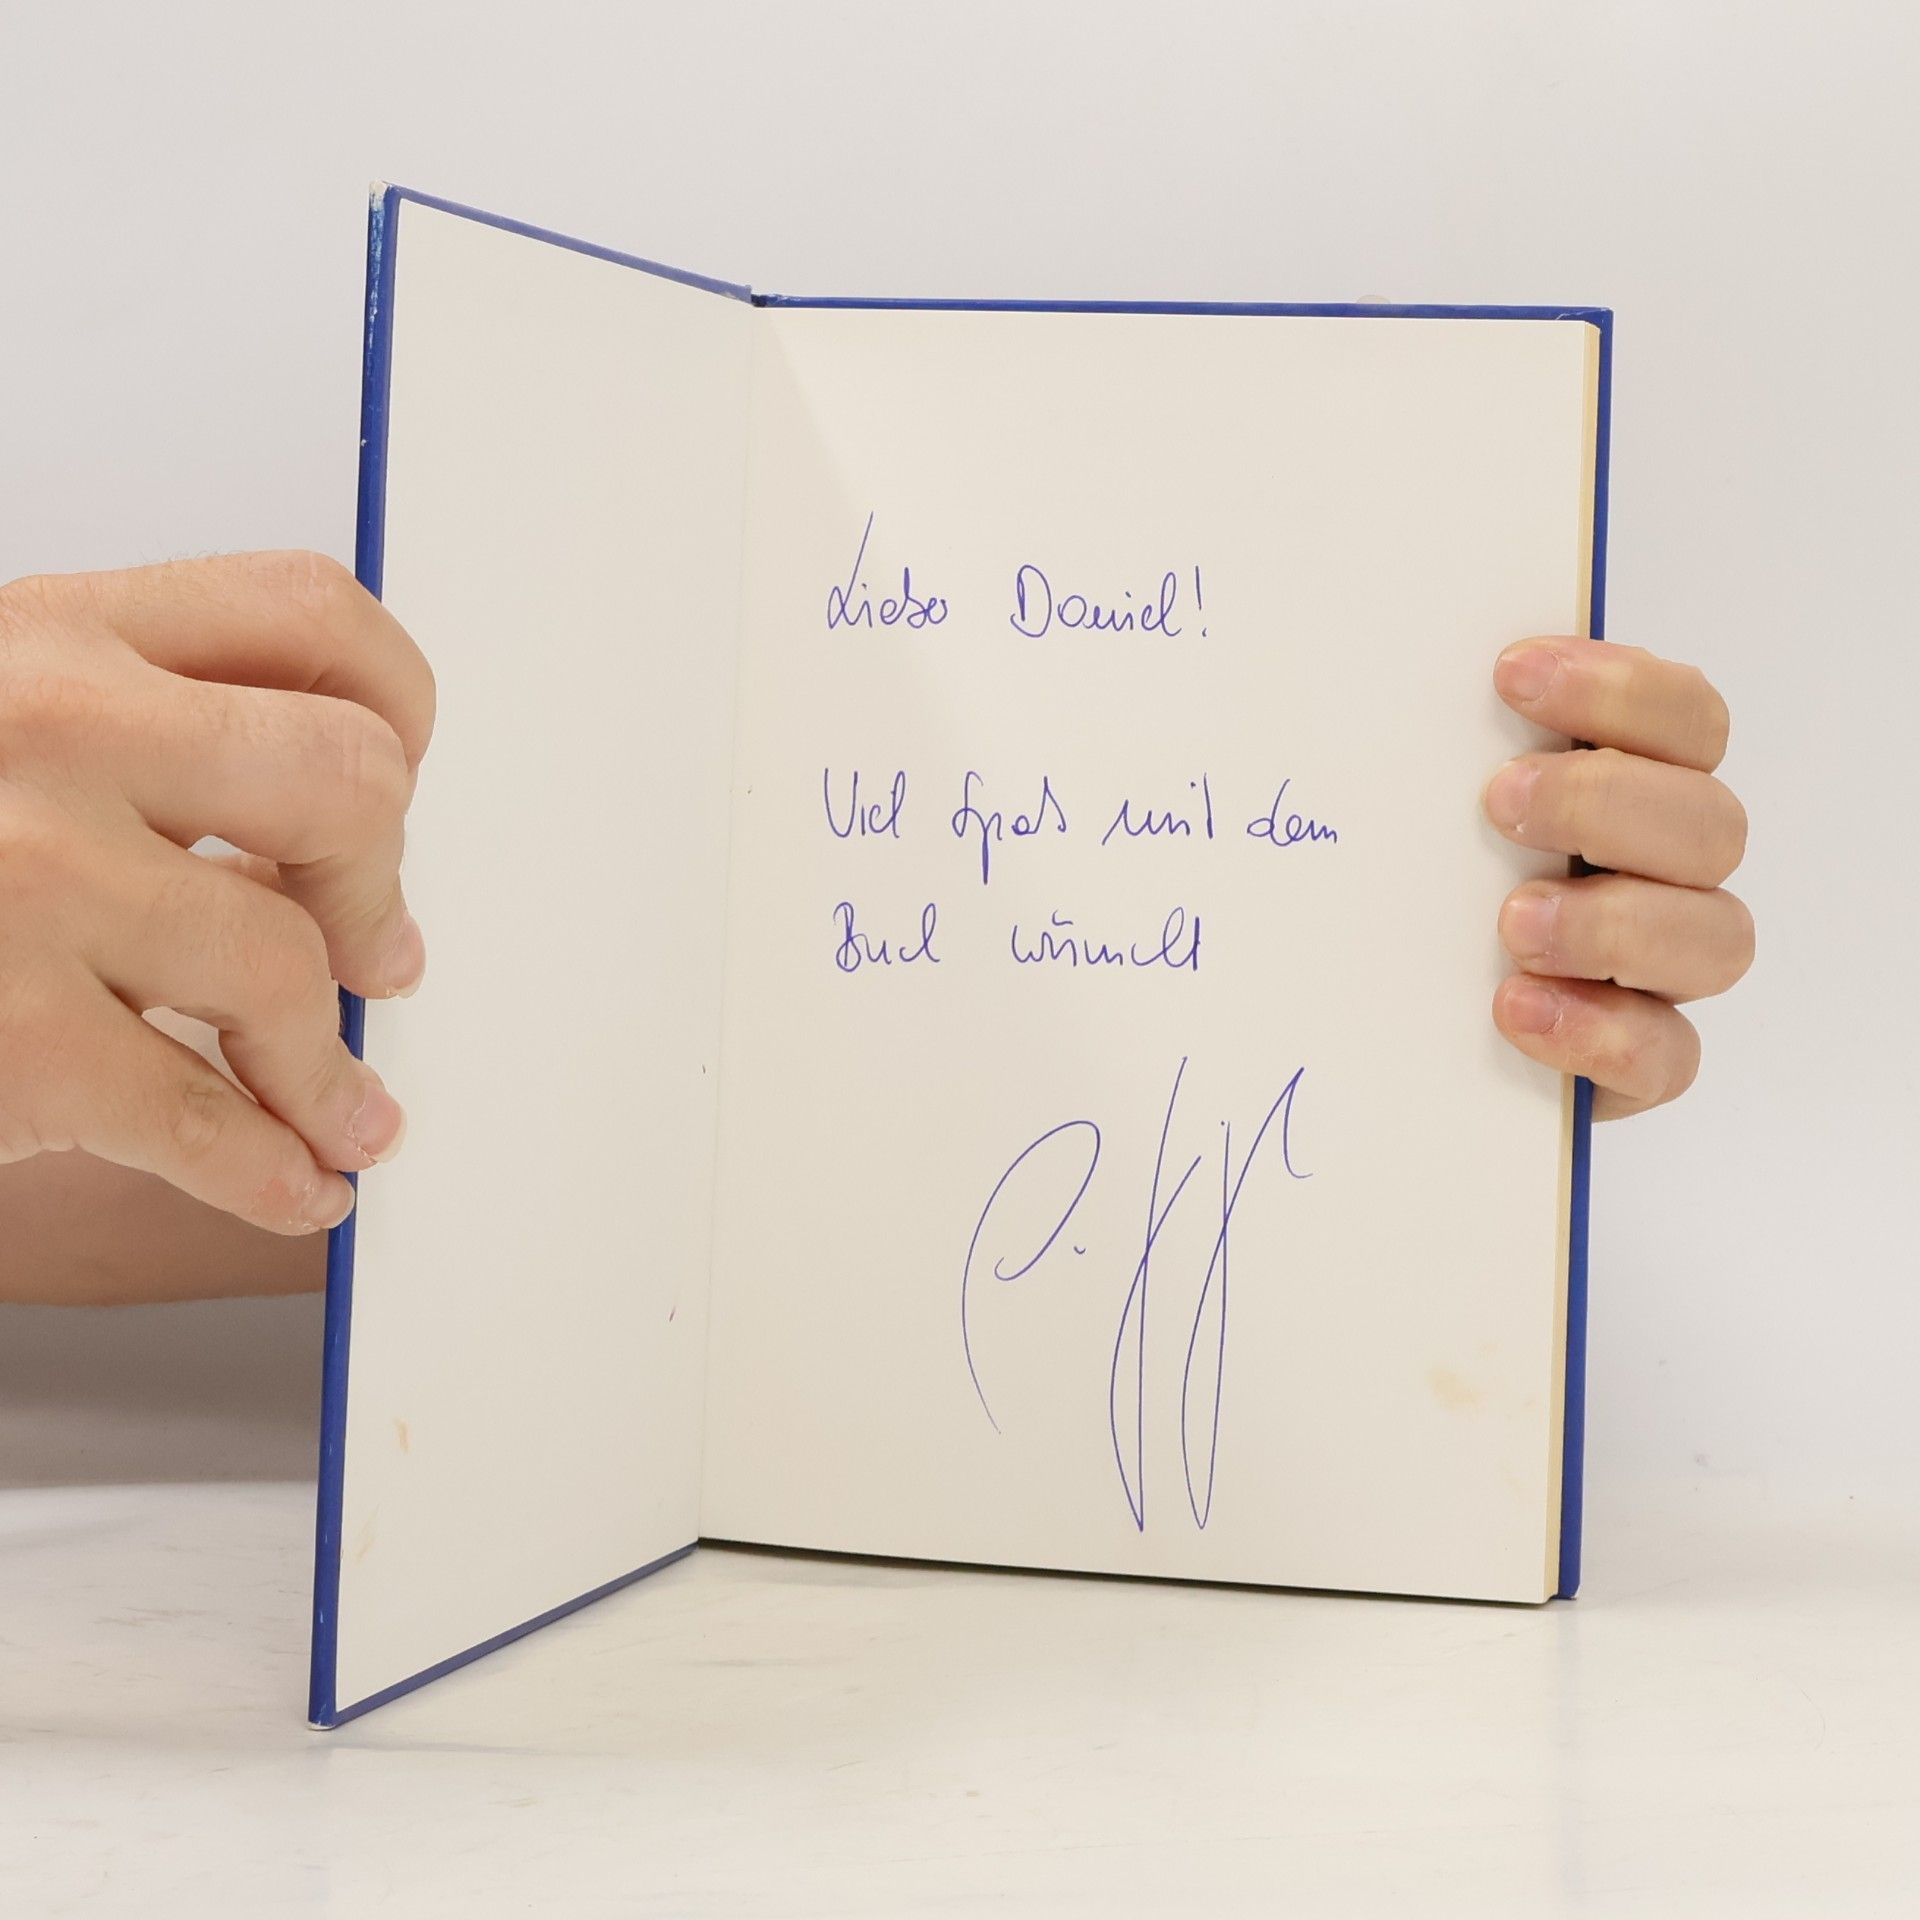 Lieber Daniel!
Viel Spaß mit dem
Buch wünscht